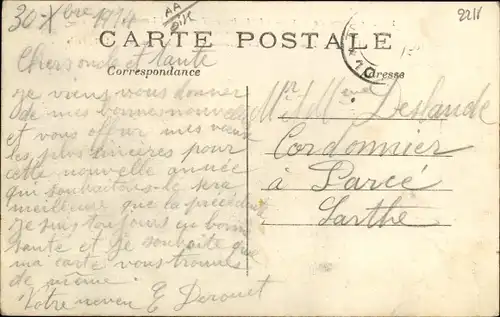 30 Xbre 1914
AA
2211
CARTE POSTALE
Correspondance
Adresse
Chers oncle et tante
je viens vous donner
de mes bonnes nouvelles
et vous offrir mes vœux
les plus sincères pour
cette nouvelle année
qui souhaitons-le sera
meilleure que la précédente
je suis toujours en bonne
santé et je souhaite que
ma carte vous trouve
de même.
Votre neveu E Derouet
Mr et Mme Deslande
Cordonnier
à Parcé
Sarthe